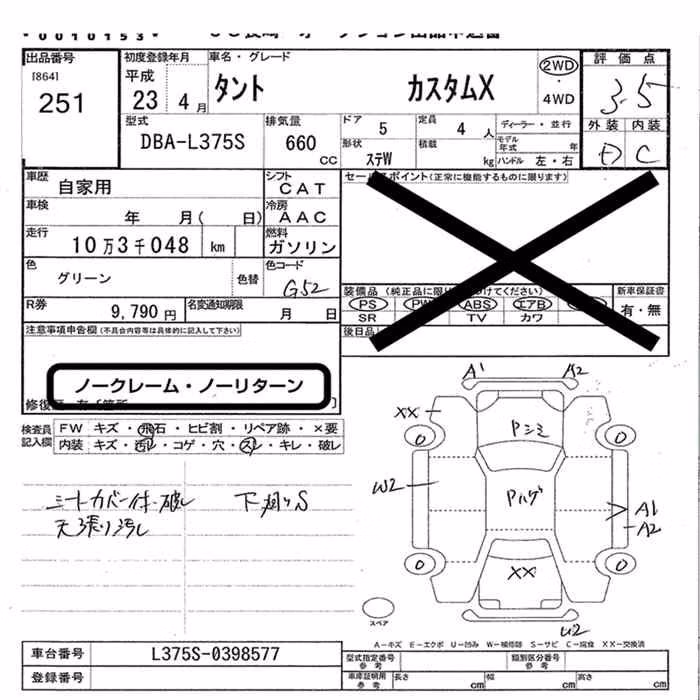 0010153
出品番号 初度登録年月 車名・グレード 2WD 評価点
[864] 平成
251 23 4 月 タント カスタムX ・ 4WD 3.5
型式 排気量 ドア 5 定員 4 人 ディーラー・並行 外装 内装
DBA-L375S 660 CC 形状 ステW 積載 kg モデル年式 年 D C
ハンドル 左・右
車歴 自家用 シフト CAT セールスポイント(正常に機能するものに限ります)
車検 年 月( 日) 冷房 AAC
走行 10万3千048 km 燃料 ガソリン
色 グリーン 色替 色コード G52
装備品 (純正品に限り つけてください) 新車保証書
PS PW ABS エアB 有・無
R券 9,790 円 名変通知期限 月 日 SR TV カワ
注意事項申告欄(不具合内容等は具体的に記入して下さい) 後日品
ノークレーム・ノーリターン
修復歴
検査員 FW キズ・飛石・ヒビ割・リペア跡・×要
記入欄 内装 キズ・汚レ・コゲ・穴・スレ・キレ・破レ
A1 A2
XX Pシミ
0 0
シートカバー付・破レ 下廻りS W2 Pハゲ A1
天張り汚レ A2
0 XX 0
スペア U2
A-キズ E-エクボ U-凹み W-補修跡 S-サビ C-腐食 XX-交換済
車台番号 L375S-0398577 型式指定番号 参考 類別区分番号 参考
登録番号 車庫証明用 参考 長さ cm 幅 cm 高さ cm